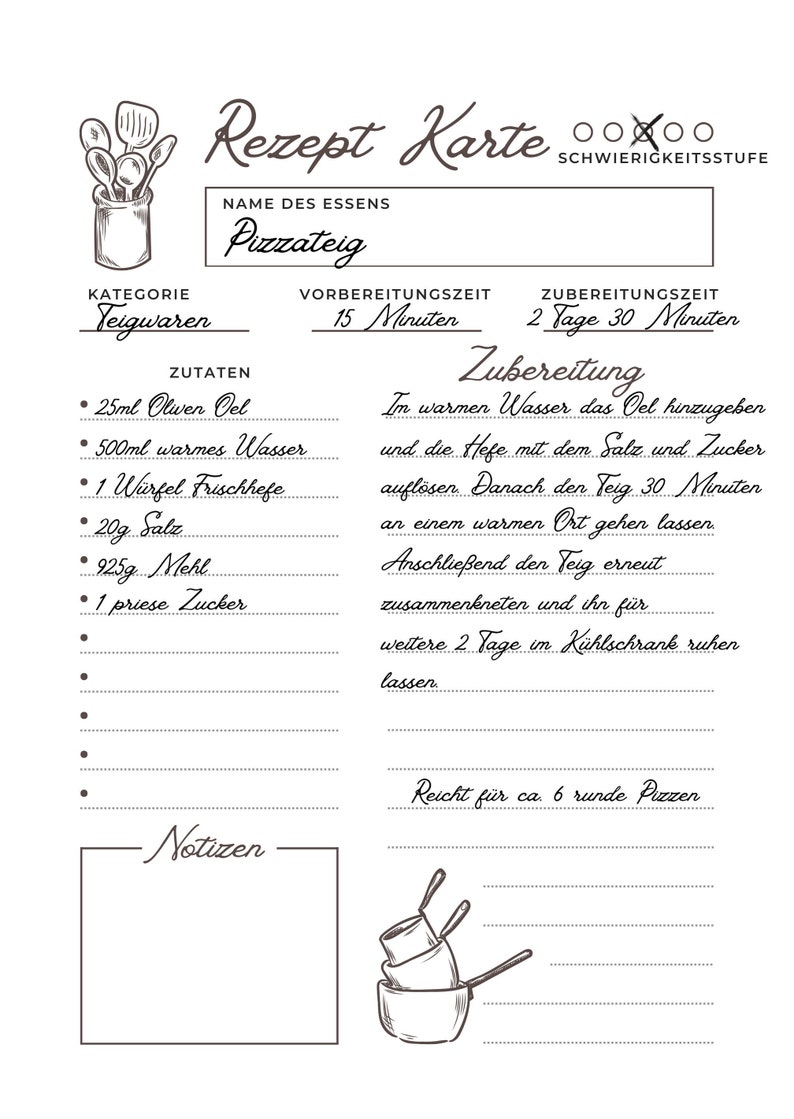 Rezept Karte
SCHWIERIGKEITSSTUFE
NAME DES ESSENS
Pizzateig
KATEGORIE
Teigwaren
VORBEREITUNGSZEIT
15 Minuten
ZUBEREITUNGSZEIT
2 Tage 30 Minuten
ZUTATEN
25ml Oliven Oel
500ml warmes Wasser
1 Würfel Frischhefe
20g Salz
925g Mehl
1 priese Zucker
Zubereitung
Im warmen Wasser das Oel hinzugeben
und die Hefe mit dem Salz und Zucker
auflösen. Danach den Teig 30 Minuten
an einem warmen Ort gehen lassen.
Anschließend den Teig erneut
zusammenkneten und ihn für
weitere 2 Tage im Kühlschrank ruhen
lassen.
Reicht für ca. 6 runde Pizzen
Notizen